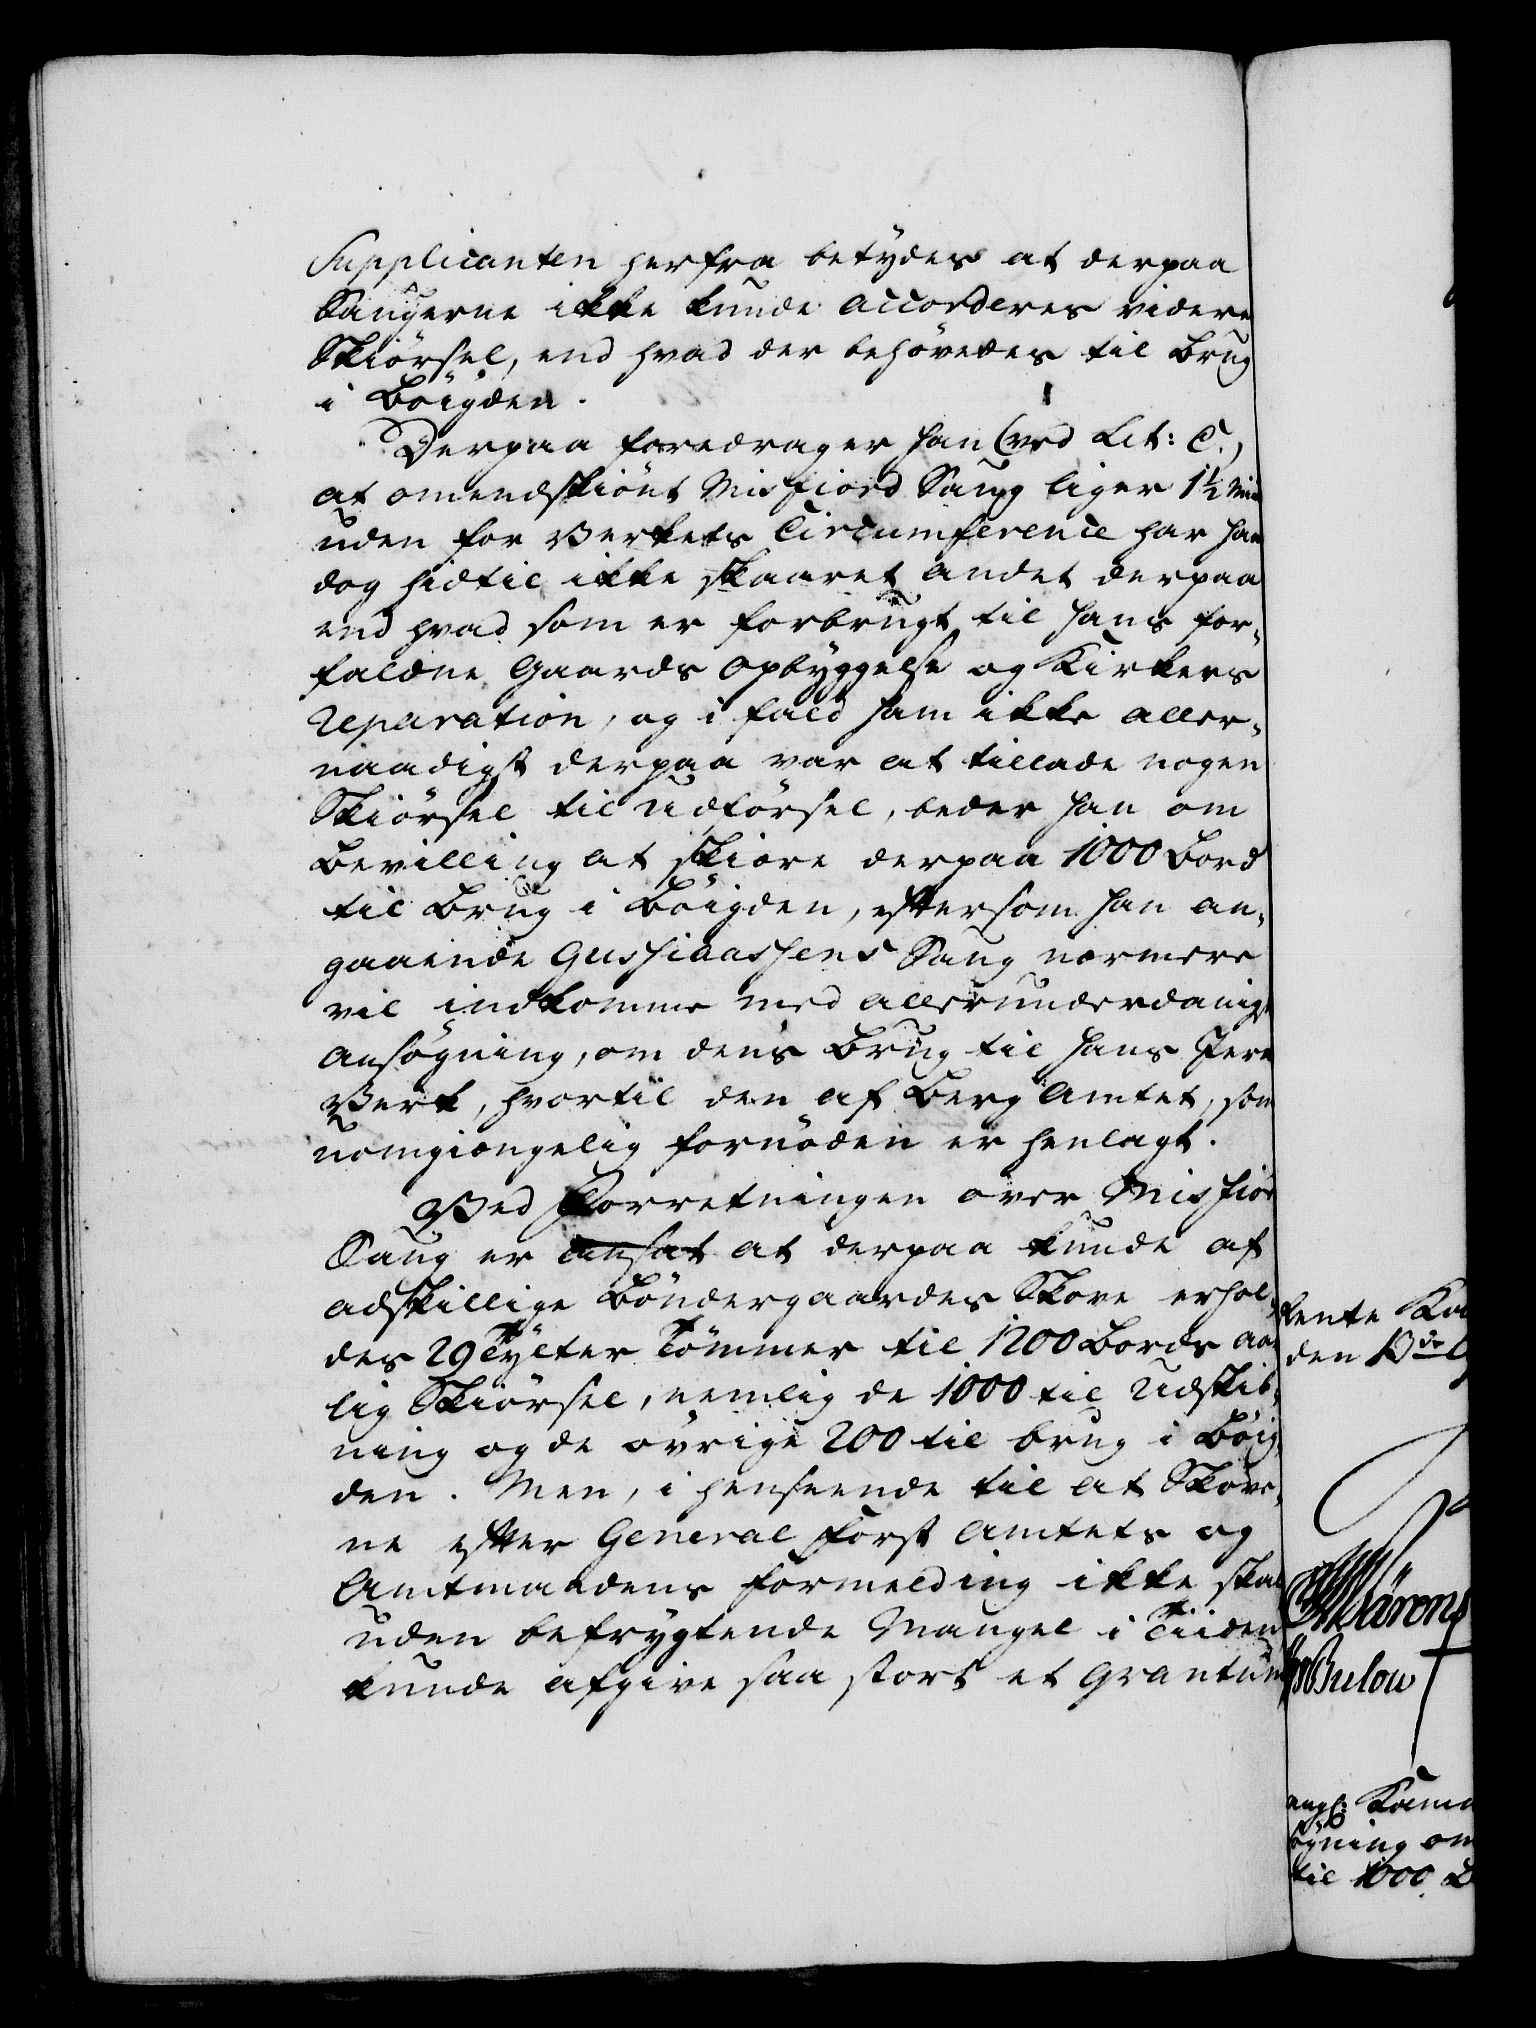 Supplicanten herfra betydes at derpaa
Saugerne ikke kunde accorderes videre
Skiørsel, end hvad der behøvedes til Brug
i Bøigden.
Derpaa foredrager han (ved Lit: C.)
at omendskiønt Misfiord Saug liger 1½ Miil
uden for Verkets Circumference har han
dog hidtil ikke skaaret andet derpaa
end hvad som er forbrugt til hans for-
faldne Gaards Opbyggelse og Kirkers
Reparation, og i fald ham ikke aller-
naadigst derpaa var at tillade nogen
Skiørsel til Udførsel, beder han om
Bevilling at skiære derpaa 1000 Bord
til Brug i Bøigden, eftersom han an-
gaaende Gushiaassens Saug nærmere
vil indkomme med allerunderdanigst
Ansøgning, om dens Brug til hans Jern
Verk, hvortil den af Berg Amtet, som
uomgiængelig fornøden er henlagt.
Ved Forretningen over Misfior
Saug er ansat at derpaa kunde af
adskillige Bøndergaardes Skove erhol-
des 29 Tylter Tømmer til 1200 Bords aar
lig Skiørsel, nemlig de 1000 til Udskib-
ning og de øvrige 200 til brug i Bøig-
den. Men, i henseende til at Skove-
ne efter General Forst Amtets og
Amtmandens Formelding ikke skal
uden befrygtende Mangel i Tiiden
kunde afgive saa stort et Qvantum
Rente Ka
den 13de
Bulow
øgning om
til 1000 B